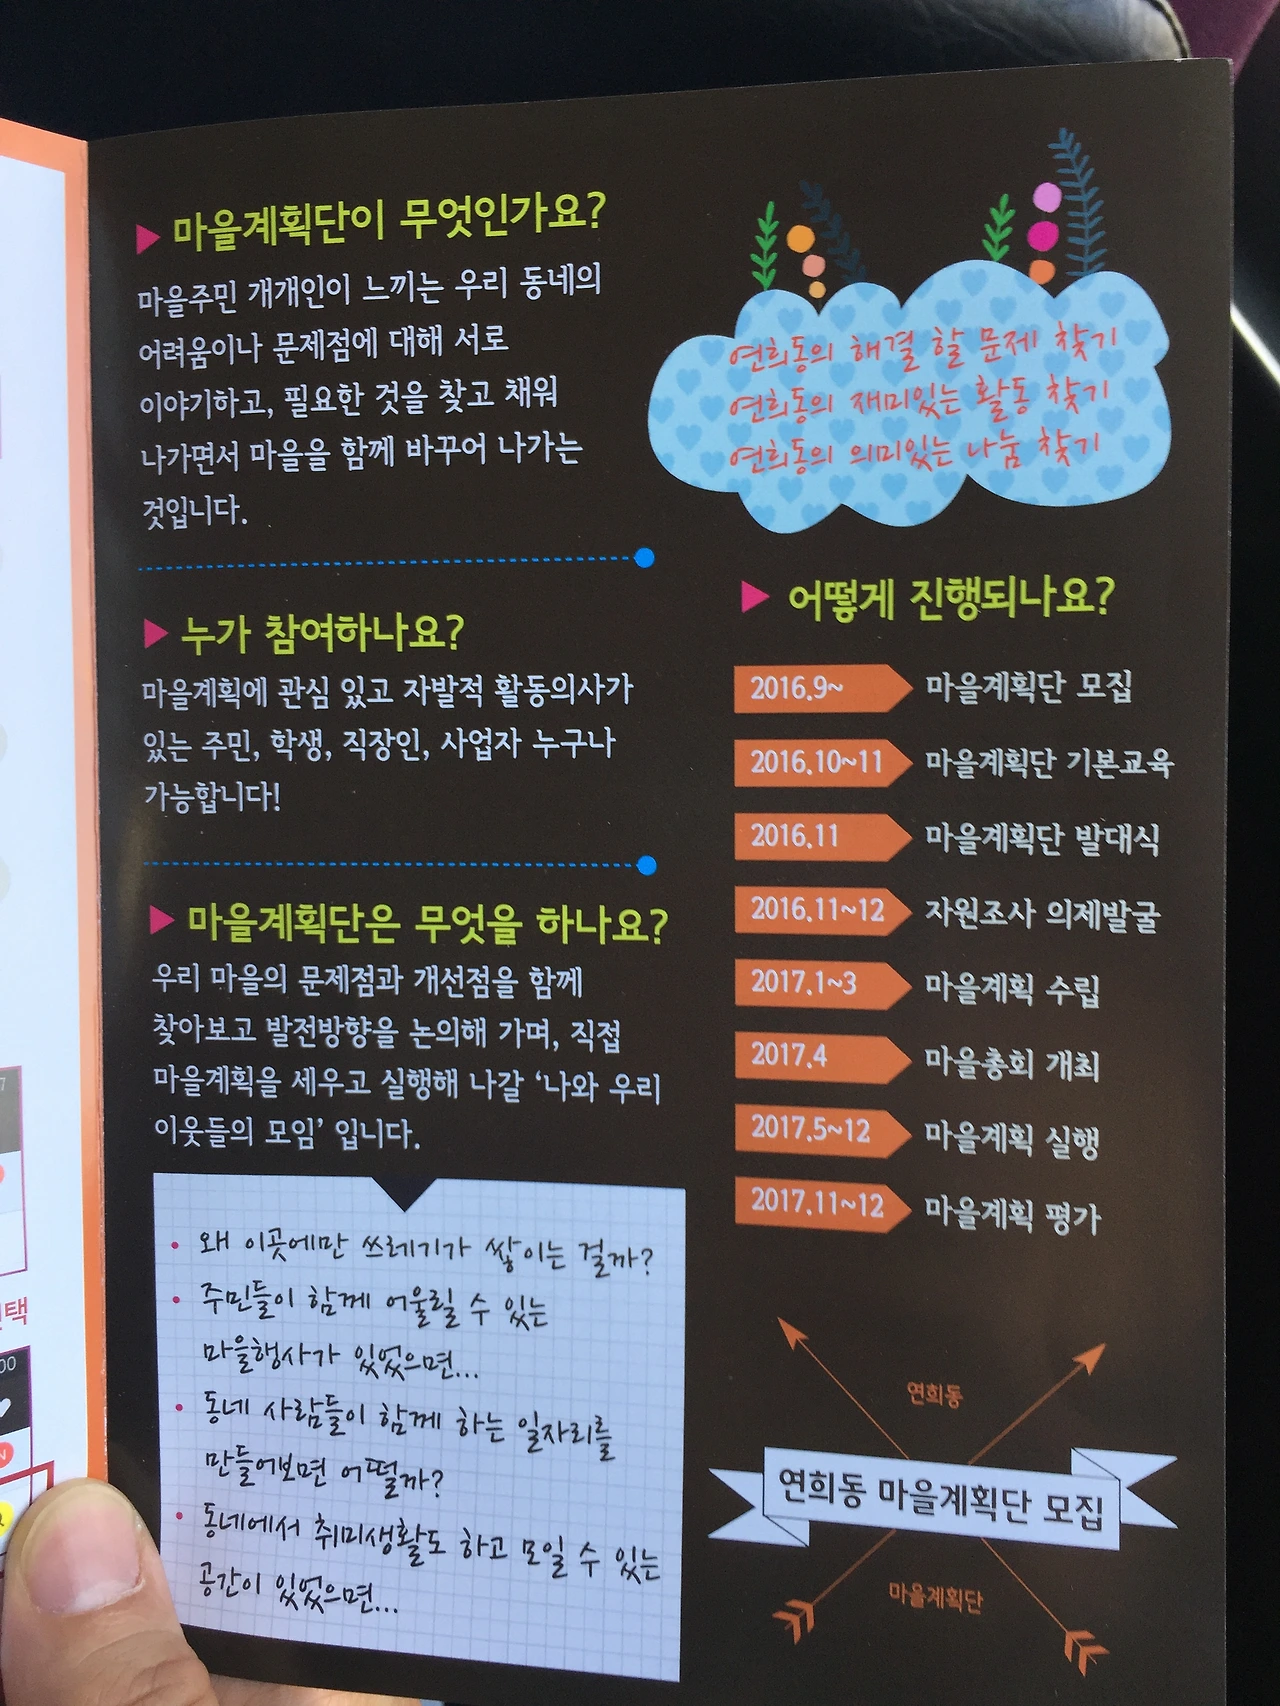 마을계획단이 무엇인가요?
마을주민 개개인이 느끼는 우리 동네의
어려움이나 문제점에 대해 서로
이야기하고, 필요한 것을 찾고 채워
나가면서 마을을 함께 바꾸어 나가는
것입니다.
누가 참여하나요?
마을계획에 관심 있고 자발적 활동의사가
있는 주민, 학생, 직장인, 사업자 누구나
가능합니다!
마을계획단은 무엇을 하나요?
우리 마을의 문제점과 개선점을 함께
찾아보고 발전방향을 논의해 가며, 직접
마을계획을 세우고 실행해 나갈 ‘나와 우리
이웃들의 모임’ 입니다.
• 왜 이곳에만 쓰레기가 쌓이는 걸까?
• 주민들이 함께 어울릴 수 있는
마을행사가 있었으면...
• 동네 사람들이 함께 하는 일자리를
만들어보면 어떨까?
• 동네에서 취미생활도 하고 모일 수 있는
공간이 있었으면...
연희동의 해결 할 문제 찾기
연희동의 재미있는 활동 찾기
연희동의 의미있는 나눔 찾기
어떻게 진행되나요?
2016.9~ 마을계획단 모집
2016.10~11 마을계획단 기본교육
2016.11 마을계획단 발대식
2016.11~12 자원조사 의제발굴
2017.1~3 마을계획 수립
2017.4 마을총회 개최
2017.5~12 마을계획 실행
2017.11~12 마을계획 평가
연희동
연희동 마을계획단 모집
마을계획단